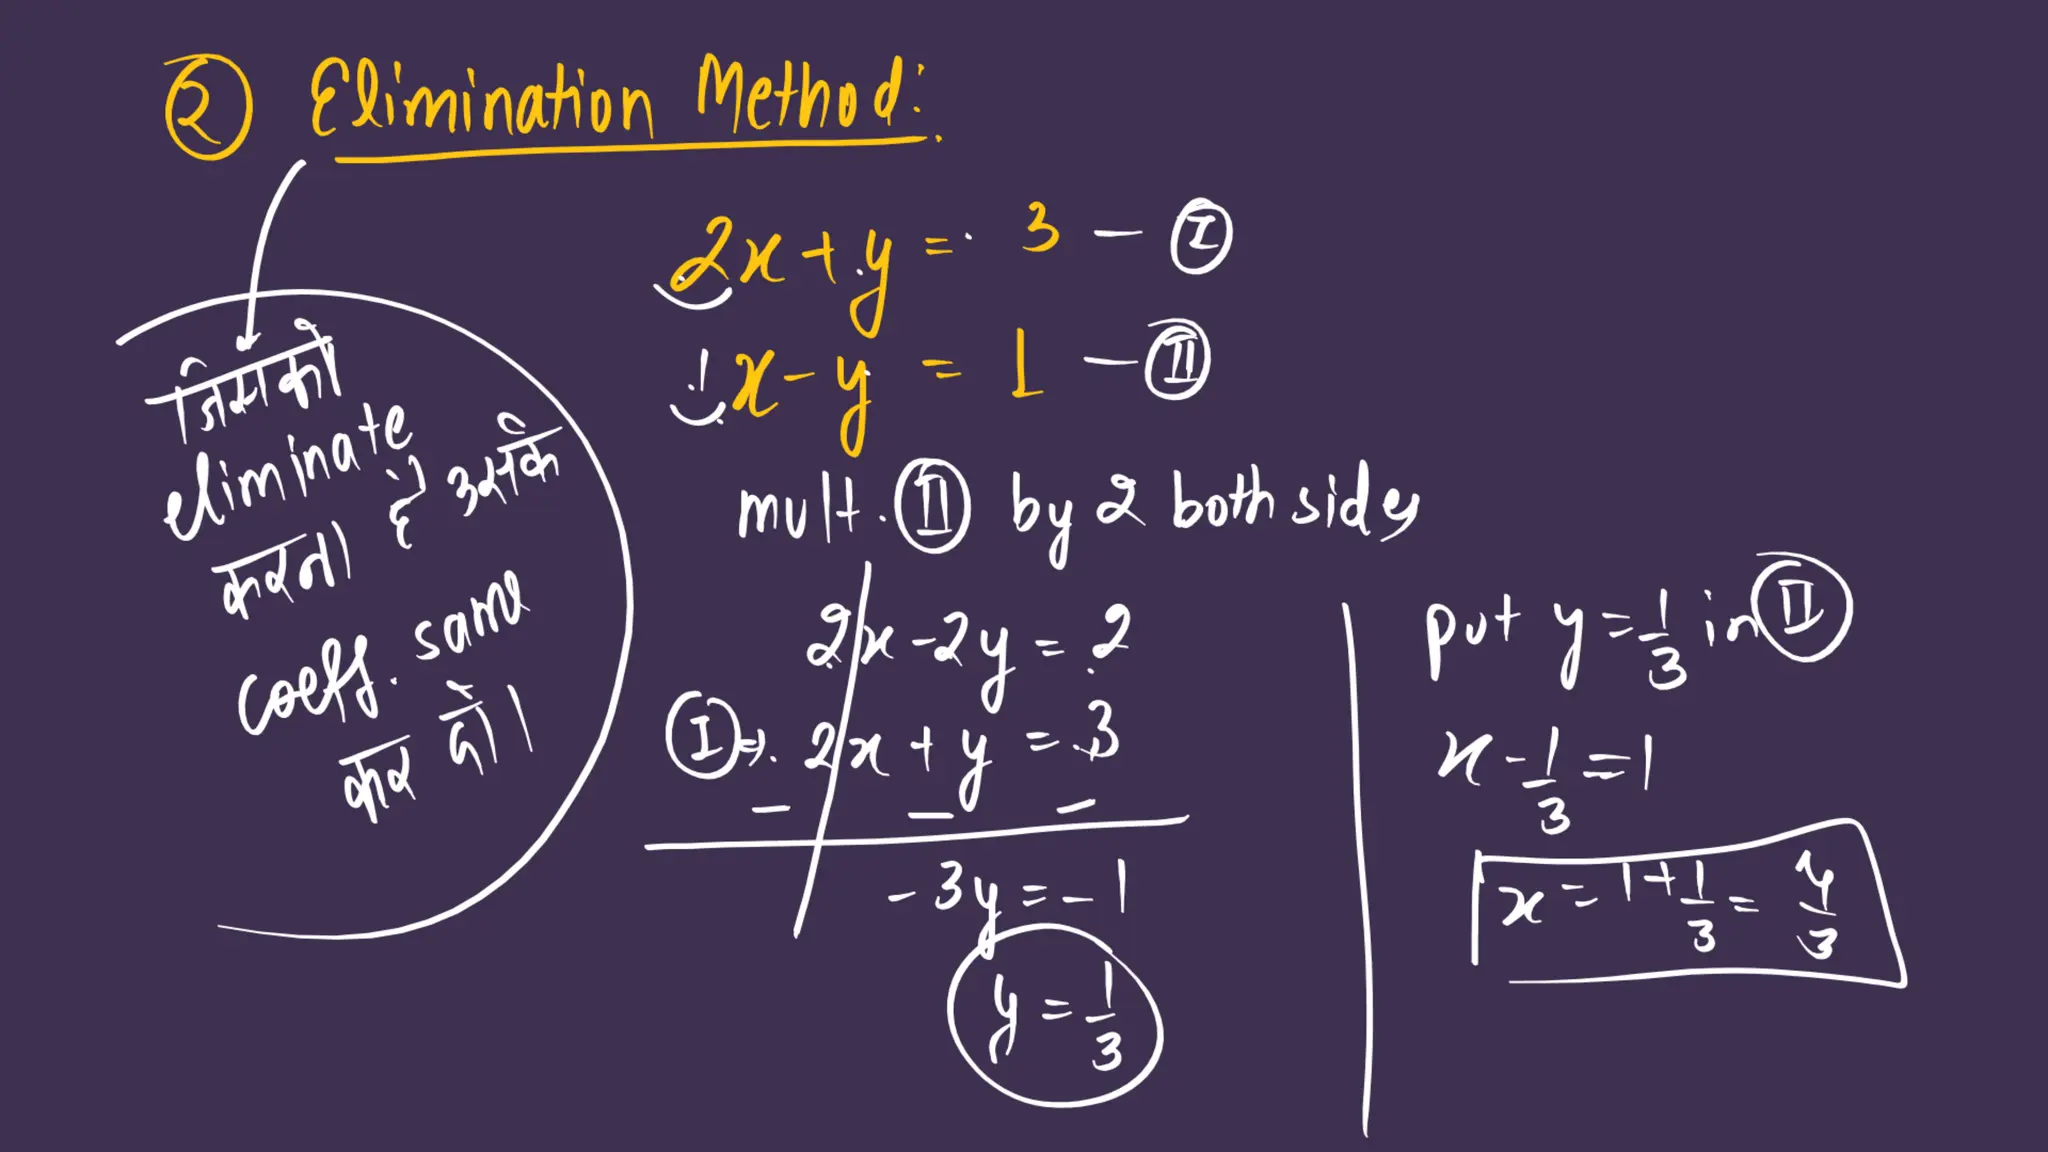 ② Elimination Method:
जिसको
eliminate
करना है उसकि
coeff. same
कर दो।
2x + y = 3 — Ⓘ
1x - y = 1 — Ⓘⓘ
mult. Ⓘⓘ by 2 both sides
2x - 2y = 2
Ⓘ ⇒ 2x + y = 3
− − −
-3y = -1
y = 1/3
put y = 1/3 in Ⓘⓘ
x - 1/3 = 1
x = 1 + 1/3 = 4/3